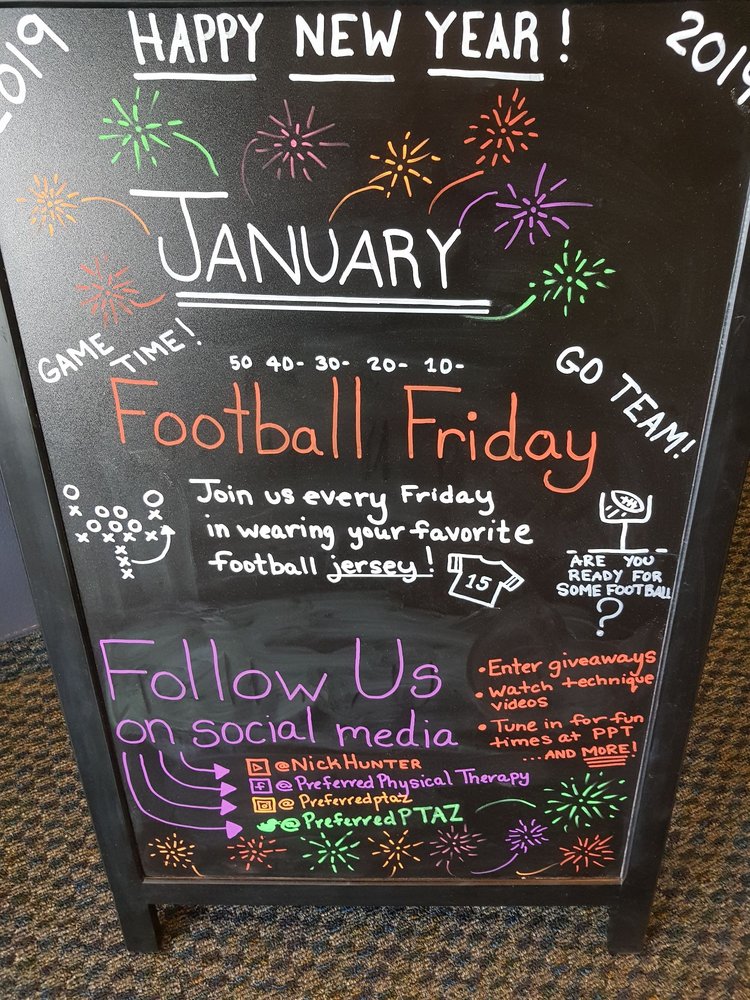 2019
HAPPY NEW YEAR!
2019
JANUARY
GAME TIME!
50 40- 30- 20- 10-
GO TEAM!
Football Friday
Join us every Friday
in wearing your favorite
football jersey!
15
ARE YOU
READY FOR
SOME FOOTBALL
?
Follow Us
on social media
@NickHunter
@PreferredPhysical Therapy
@Preferredptaz
@PreferredPTAZ
• Enter giveaways
• Watch technique
videos
• Tune in for fun
times at PPT
...AND MORE!